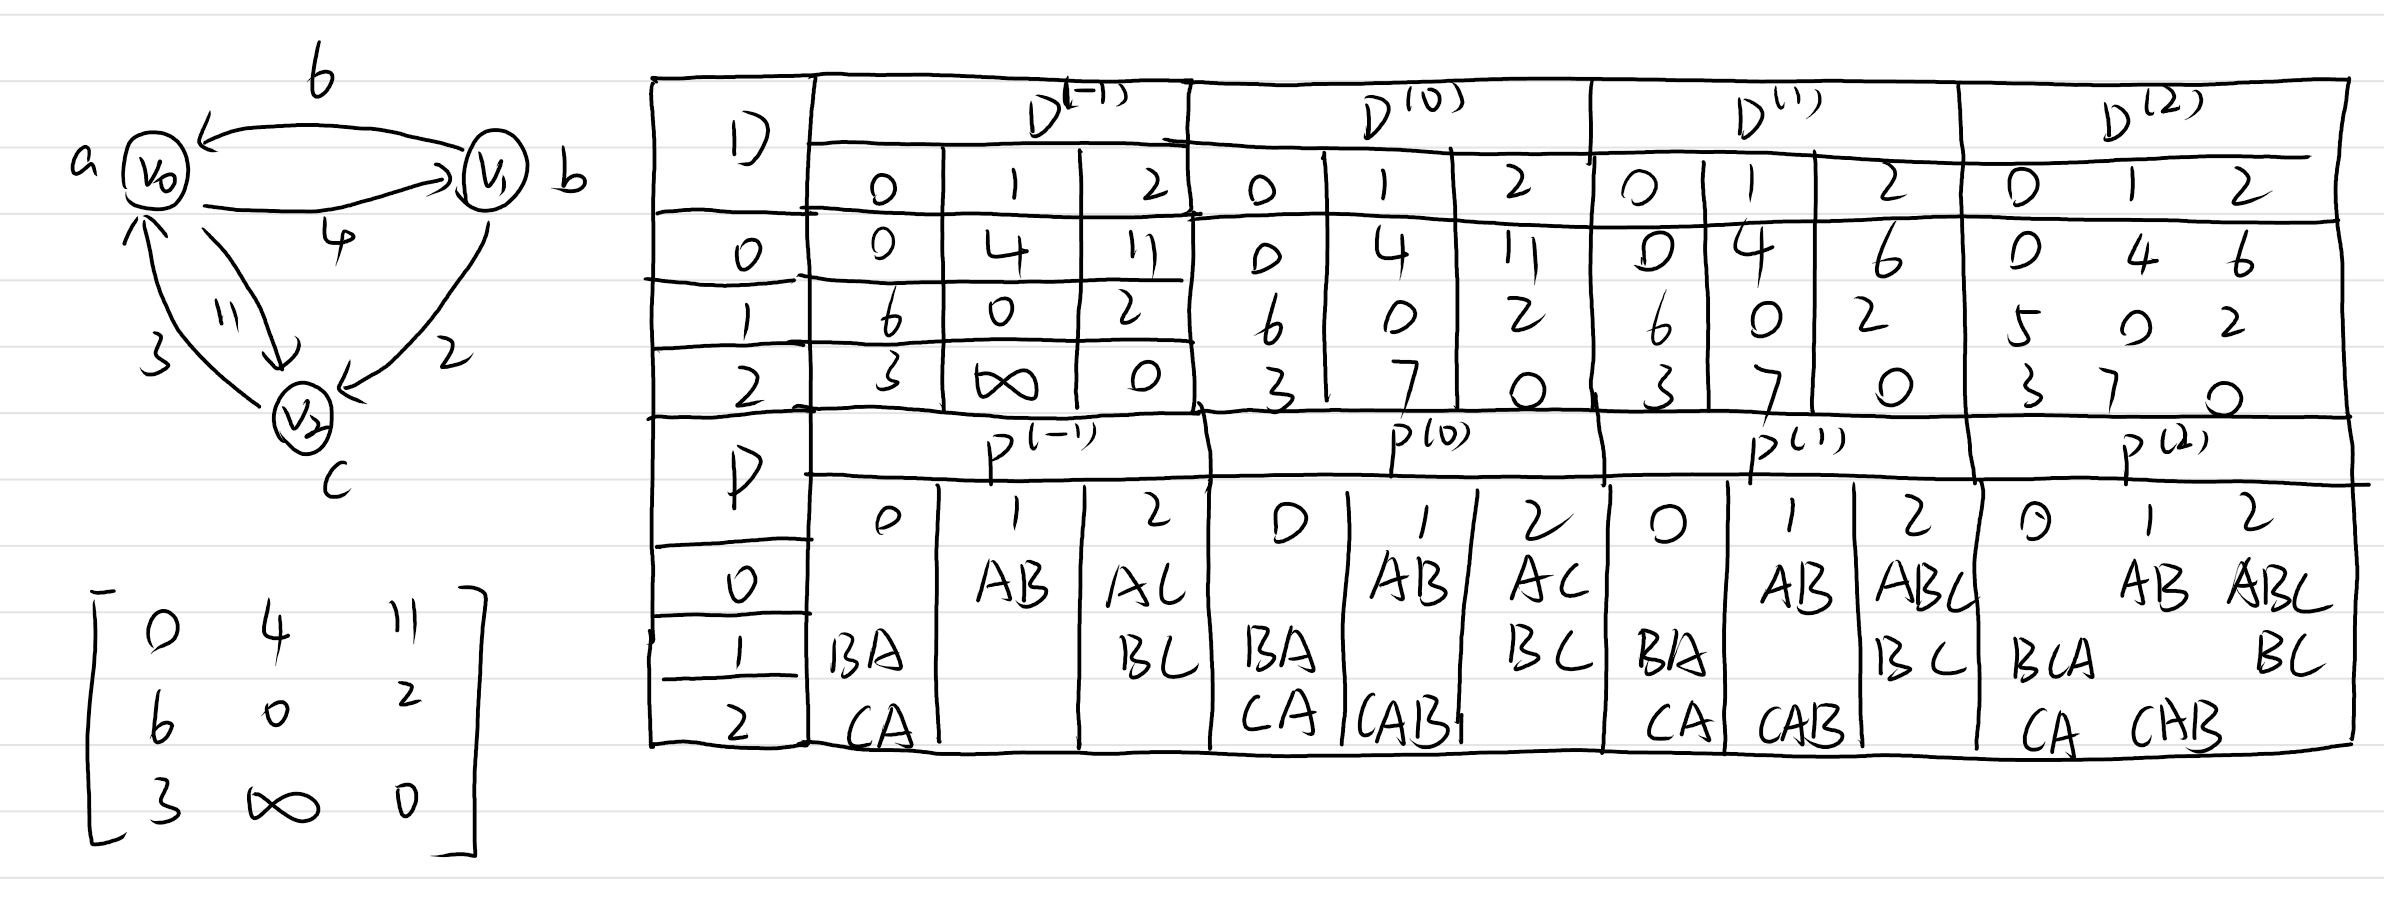 6
a V₀ V₁ b
4
3 11 2
V₂
c
0 4 11
6 0 2
3 ∞ 0
D D⁽⁻¹⁾ D⁽⁰⁾ D⁽¹⁾ D⁽²⁾
0 1 2 0 1 2 0 1 2 0 1 2
0 0 4 11 0 4 11 0 4 6 0 4 6
1 6 0 2 6 0 2 6 0 2 5 0 2
2 3 ∞ 0 3 7 0 3 7 0 3 7 0
P P⁽⁻¹⁾ P⁽⁰⁾ P⁽¹⁾ P⁽²⁾
0 1 2 0 1 2 0 1 2 0 1 2
0 AB AC AB AC AB ABC AB ABC
1 BA BC BA BC BA BC BCA BC
2 CA CA CAB CA CAB CA CAB